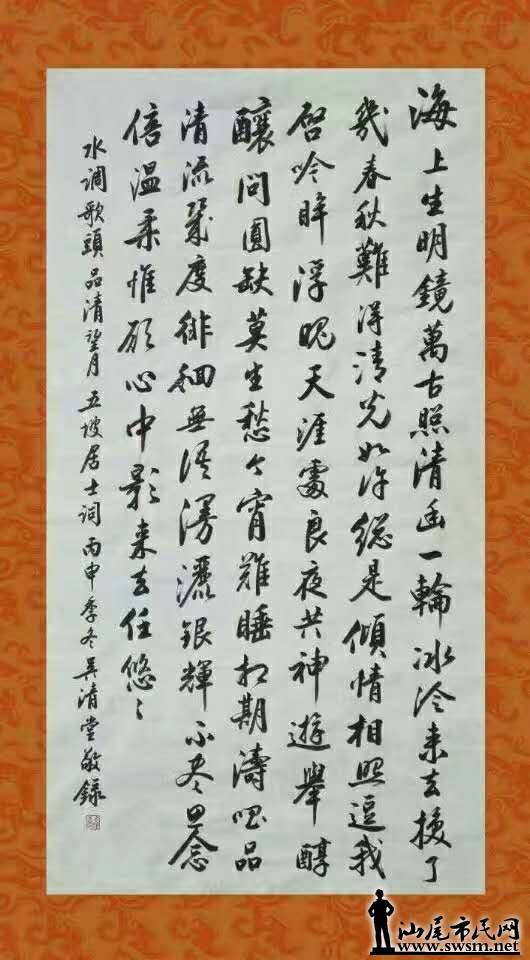 海上生明鏡萬古照清幽一輪冰冷来去換了
幾春秋難得清光如许總是傾情相照逗我
啓吟眸浮天涯處良夜共神遊舉醇
釀问圓缺莫生愁今宵難睡相期濤品
清流幾度徘徊無语漫灑银輝不尽思念
倍温柔惟願心中影来去任悠々
水调歌頭品清望月五坡居士词丙申季冬吴清堂敬録
汕尾市民网
www.swsm.net